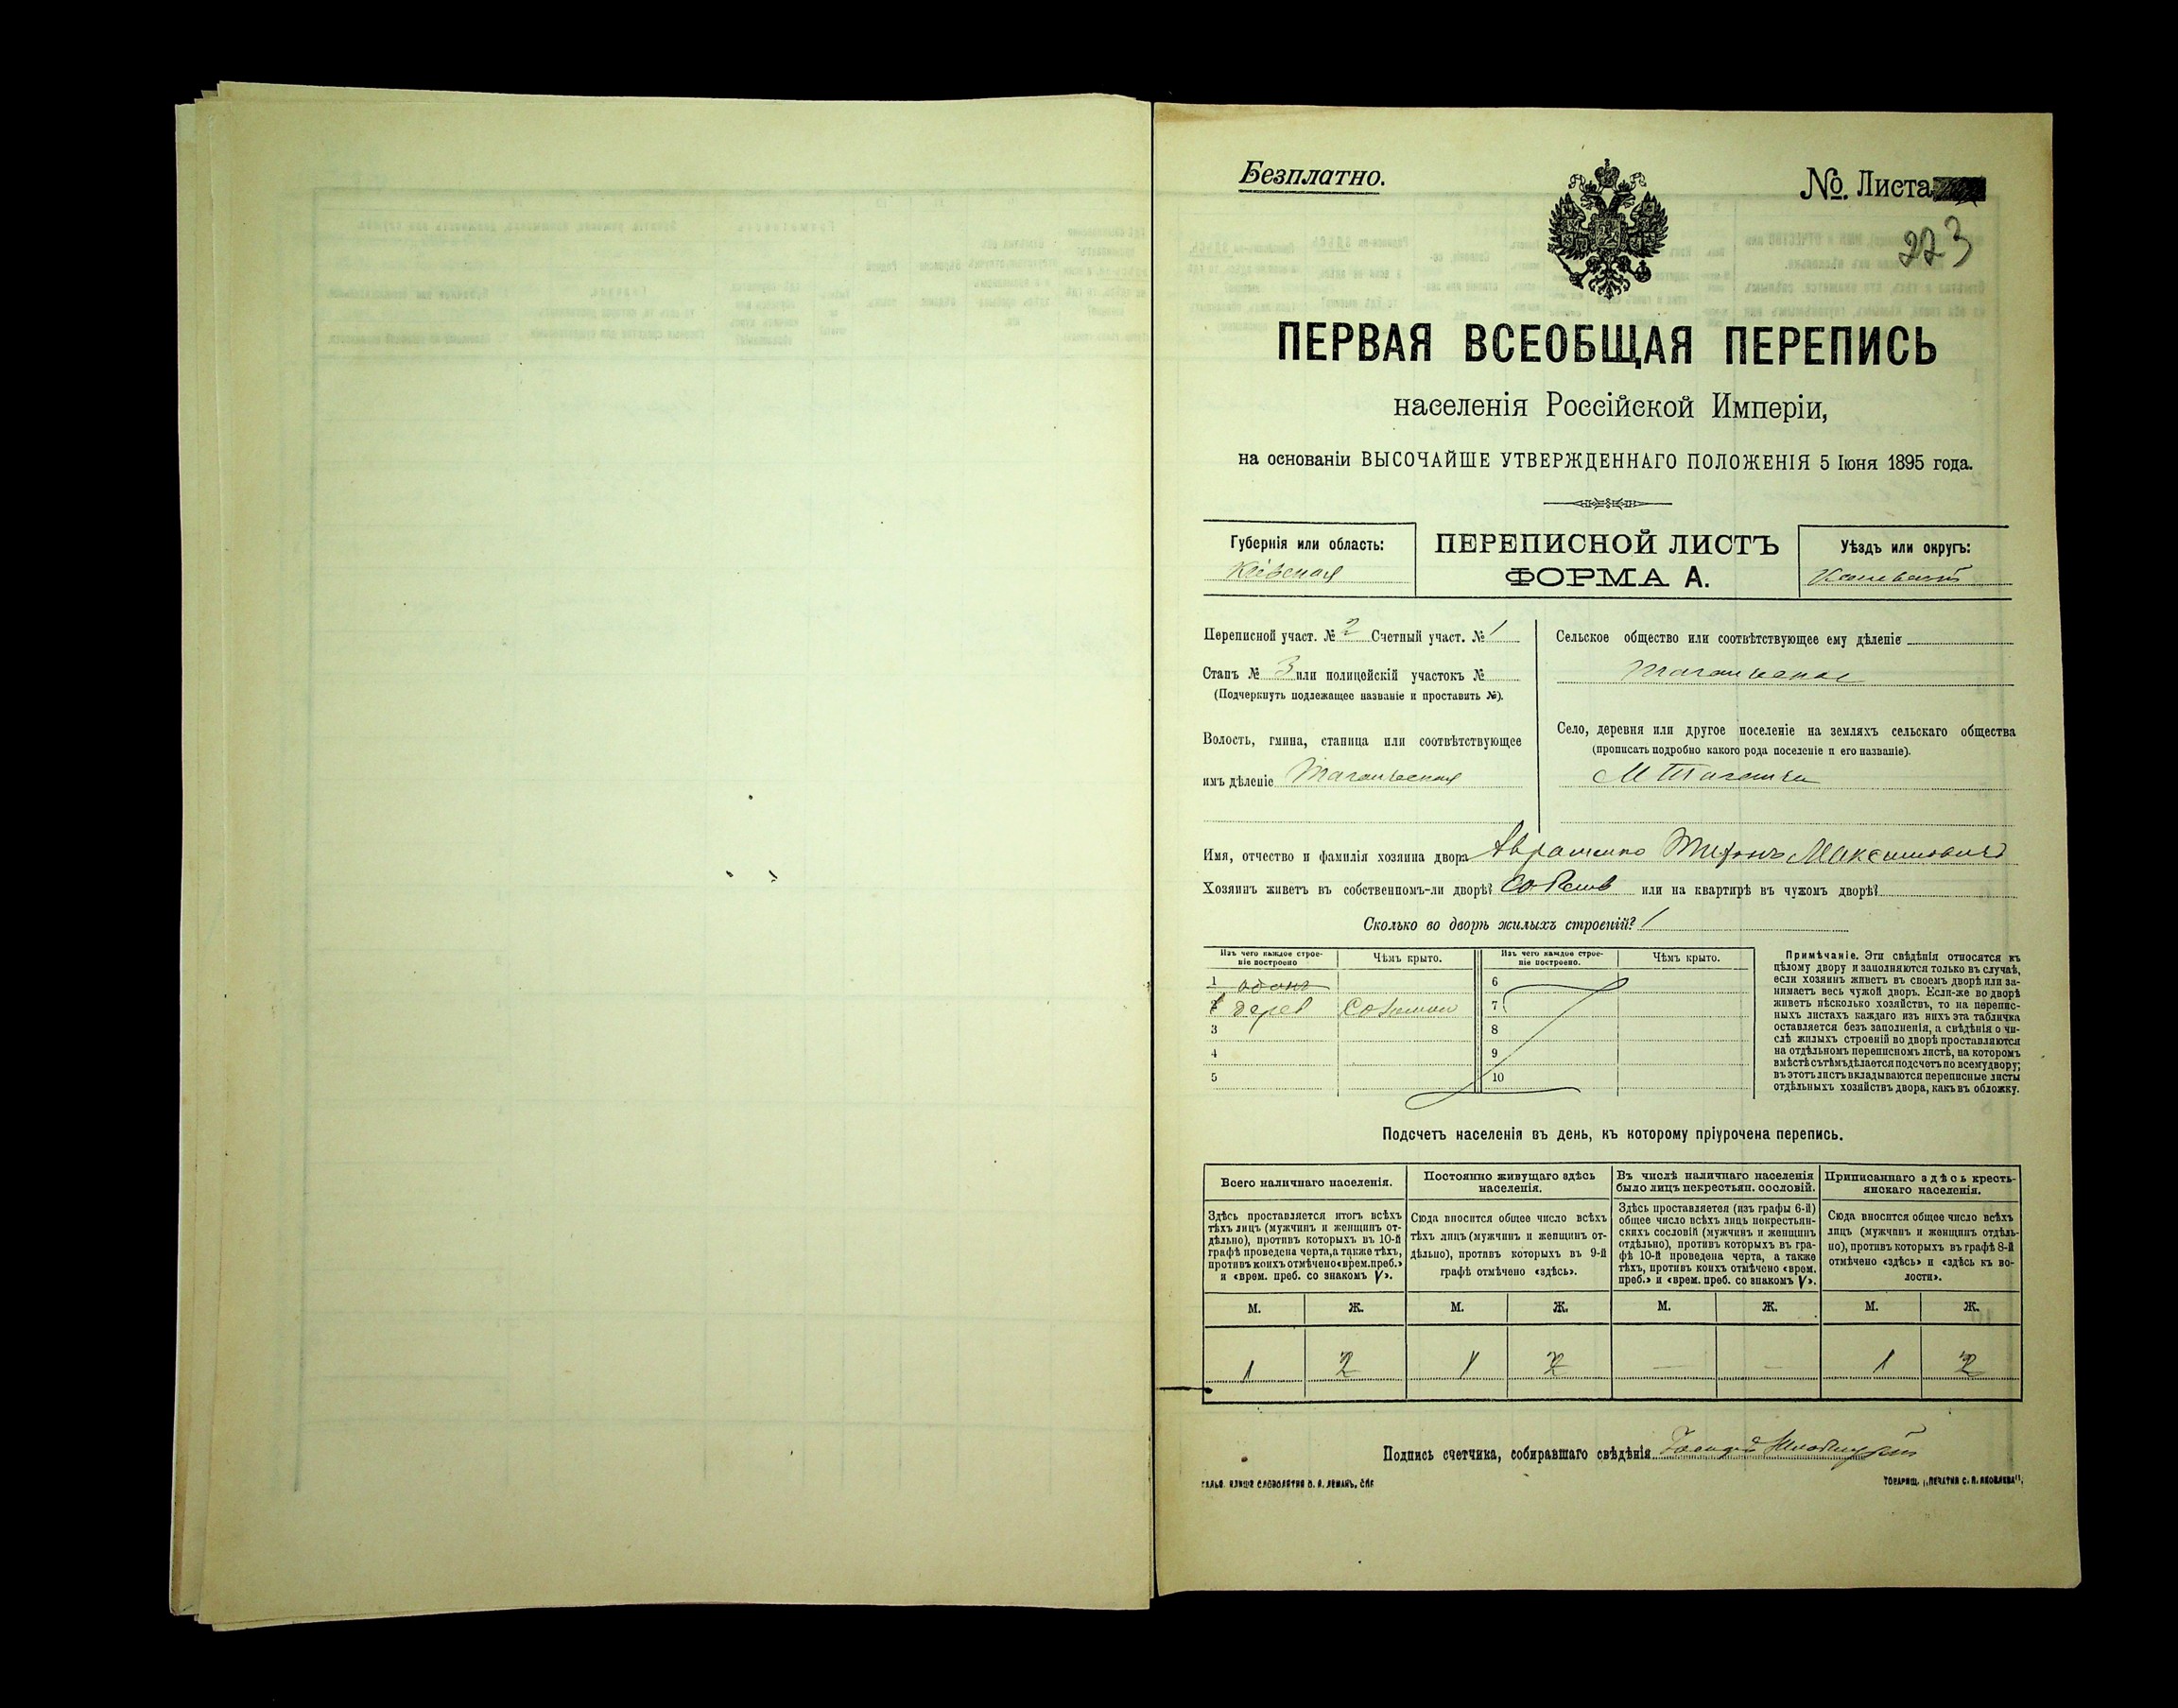 Безплатно.
№ Листа
223
ПЕРВАЯ ВСЕОБЩАЯ ПЕРЕПИСЬ
населенія Россійской Имперіи,
на основаніи ВЫСОЧАЙШЕ УТВЕРЖДЕННАГО ПОЛОЖЕНІЯ 5 Іюня 1895 года.
Губернія или область:
Кіевская
ПЕРЕПИСНОЙ ЛИСТЪ
ФОРМА А.
Уѣздъ или округъ:
Каневскій
Переписной участ. № 2 Счетный участ. № 1
Станъ № 3 или полицейскій участокъ №
(Подчеркнуть подлежащее названіе и проставить №).
Волость, гмина, станица или соотвѣтствующее
имъ дѣленіе Таганчская
Сельское общество или соотвѣтствующее ему дѣленіе
Таганчское
Село, деревня или другое поселеніе на земляхъ сельскаго общества
(прописать подробно какого рода поселеніе и его названіе).
М Таганча
Имя, отчество и фамилія хозяина двора Авраменко Тихонъ Максимовичъ
Хозяинъ живетъ въ собственномъ-ли дворѣ? или на квартирѣ въ чужомъ дворѣ?
Сколько во дворѣ жилыхъ строеній? 1
Изъ чего каждое строе-
ніе построено
Чѣмъ крыто.
Изъ чего каждое строе-
ніе построено.
Чѣмъ крыто.
1
6
2 дерев Соломои
7
3
8
4
9
5
10
Примѣчаніе. Эти свѣдѣнія относятся къ
цѣлому двору и заполняются только въ случаѣ,
если хозяинъ живетъ въ своемъ дворѣ или за-
нимаетъ весь чужой дворъ. Если-же во дворѣ
живетъ нѣсколько хозяйствъ, то на перепис-
ныхъ листахъ каждаго изъ нихъ эта табличка
оставляется безъ заполненія, а свѣдѣнія о чи-
слѣ жилыхъ строеній во дворѣ проставляются
на отдѣльномъ переписномъ листѣ, на которомъ
вмѣстѣ съ тѣмъ дѣлается подсчетъ по всему двору;
въ этотъ листъ вкладываются переписные листы
отдѣльныхъ хозяйствъ двора, какъ въ обложку.
Подсчетъ населенія въ день, къ которому пріурочена перепись.
Всего наличнаго населенія.
Постоянно живущаго здѣсь
населенія.
Въ числѣ наличнаго населенія
было лицъ некрестьян. сословій.
Приписаннаго здѣсь кресть-
янскаго населенія.
Здѣсь проставляется итогъ всѣхъ
тѣхъ лицъ (мужчинъ и женщинъ от-
дѣльно), противъ которыхъ въ 10-й
графѣ проведена черта, а также тѣхъ,
противъ коихъ отмѣчено «врем. преб.»
и «врем. преб. со знакомъ V».
Сюда вносится общее число всѣхъ
тѣхъ лицъ (мужчинъ и женщинъ от-
дѣльно), противъ которыхъ въ 9-й
графѣ отмѣчено «здѣсь».
Здѣсь проставляется (изъ графы 6-й)
общее число всѣхъ лицъ некрестьян-
скихъ сословій (мужчинъ и женщинъ
отдѣльно), противъ которыхъ въ гра-
фѣ 10-й проведена черта, а также
тѣхъ, противъ коихъ отмѣчено «врем.
преб.» и «врем. преб. со знакомъ V».
Сюда вносится общее число всѣхъ
лицъ (мужчинъ и женщинъ отдѣль-
но), противъ которыхъ въ графѣ 8-й
отмѣчено «здѣсь» и «здѣсь къ во-
лости».
М. Ж. М. Ж. М. Ж. М. Ж.
1 2 1 2 — — 1 2
Подпись счетчика, собиравшаго свѣдѣнія
СЛОВОЛИТНЯ О. И. ЛЕМАНЪ, СПБ
ТОВАРИЩ. „ПЕЧАТНЯ С. П. ЯКОВЛЕВА“,